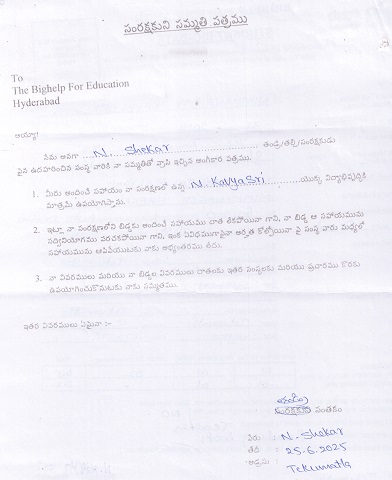 సంరక్షకుని సమ్మతి పత్రము
To
The Bighelp For Education
Hyderabad
అయ్యా!
నేను అనగా ...N. Shekar... తండ్రి/తల్లి/సంరక్షకుడు
పైన ఉదహరించిన సంస్థ వారికి నా సమ్మతితో వ్రాసి ఇచ్చిన అంగీకార పత్రము.
1. మీరు అందించే సహాయం నా సంరక్షణలో ఉన్న N. Kavya Sri యొక్క విద్యాభివృద్ధికి
మాత్రమే ఉపయోగిస్తాను.
2. ఇట్లా నా సంరక్షణలోని బిడ్డకు అందించే సహాయము దాత లేకపోయినా గాని, నా బిడ్డ ఆ సహాయమును
సద్వినియోగము పరచకపోయినా గాని, ఇంక ఏవిధముగానైనా అర్హత కోల్పోయినా పై సంస్థ వారు మధ్యలో
సహాయమును ఆపివేయుటకు నాకు అభ్యంతరము లేదు.
3. నా వివరములు మరియు నా బిడ్డల వివరములు దాతలకు ఇతర సంస్థలకు మరియు ప్రచారము కొరకు
ఉపయోగించుకొనుటకు నాకు సమ్మతము.
ఇతర వివరములు ఏమైనా :-
తండ్రి
సంరక్షకుని సంతకం
పేరు : N. Shekar
తేది : 25.6.2025
అడ్రసు : Tekumatla